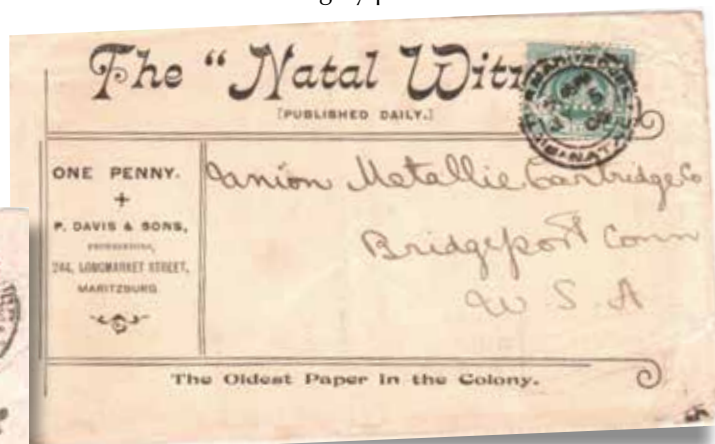 The "Natal Wit
[PUBLISHED DAILY.]
ONE PENNY.
+
P. DAVIS & SONS,
PROPRIETORS,
244, LONGMARKET STREET,
MARITZBURG
Union Metallic Cartridge Co
Bridgeport Conn
U S A
The Oldest Paper in the Colony.